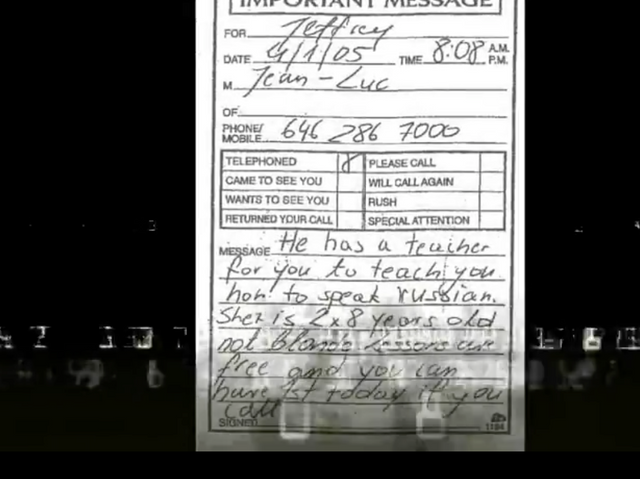 IMPORTANT MESSAGE
FOR Jeffrey
DATE 4/1/05 TIME 8:08 A.M. P.M.
M Jean-Luc
OF
PHONE/MOBILE 646 286 7000
TELEPHONED PLEASE CALL
CAME TO SEE YOU WILL CALL AGAIN
WANTS TO SEE YOU RUSH
RETURNED YOUR CALL SPECIAL ATTENTION
MESSAGE He has a teacher
for you to teach you
how to speak russian.
She is 2x8 years old
not blonde Lessons are
free and you can
have 1st today if you
call
SIGNED 1184